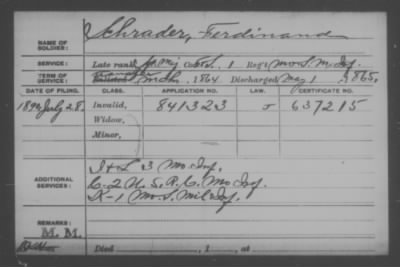 Schrader, Ferdinand
NAME OF SOLDIER:
SERVICE: Late rank, Co. 1 Reg't Mo. S. M. Inf.
TERM OF SERVICE: Enlisted Mch. 1864 Discharged May 1, 1865.
DATE OF FILING. CLASS. APPLICATION NO. LAW. CERTIFICATE NO.
1890 July 28. Invalid, 841323 J 637215
Widow,
Minor,
ADDITIONAL SERVICES: I & L 3 Mo. Inf.
C-2 U. S. R. C. Mo Inf.
K-1 Mo. S. Mil Inf.
REMARKS:
M. M.
Died , 1 , at